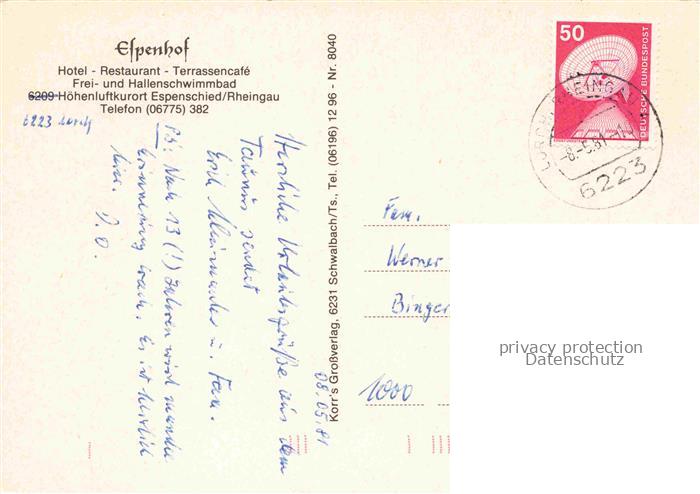 Espenhof
Hotel - Restaurant - Terrassencafé
Frei- und Hallenschwimmbad
6209 Höhenluftkurort Espenschied/Rheingau
Telefon (06775) 382
6223 Lorch
Herzliche Urlaubsgrüße aus dem
Taunus sendet
Erich u. Fam.
PS: Nach 13 (!) Jahren wird manche
Erinnerung wach. Es ist herrlich
hier. D. O.
08.05.81
Korr's Großverlag, 6231 Schwalbach/Ts., Tel. (06196) 12 96 - Nr. 8040
50
DEUTSCHE BUNDESPOST
LORCH, RHEINGAU
-8.-5.81-
6223
Fam.
Werner
Binger
1000
privacy protection
Datenschutz